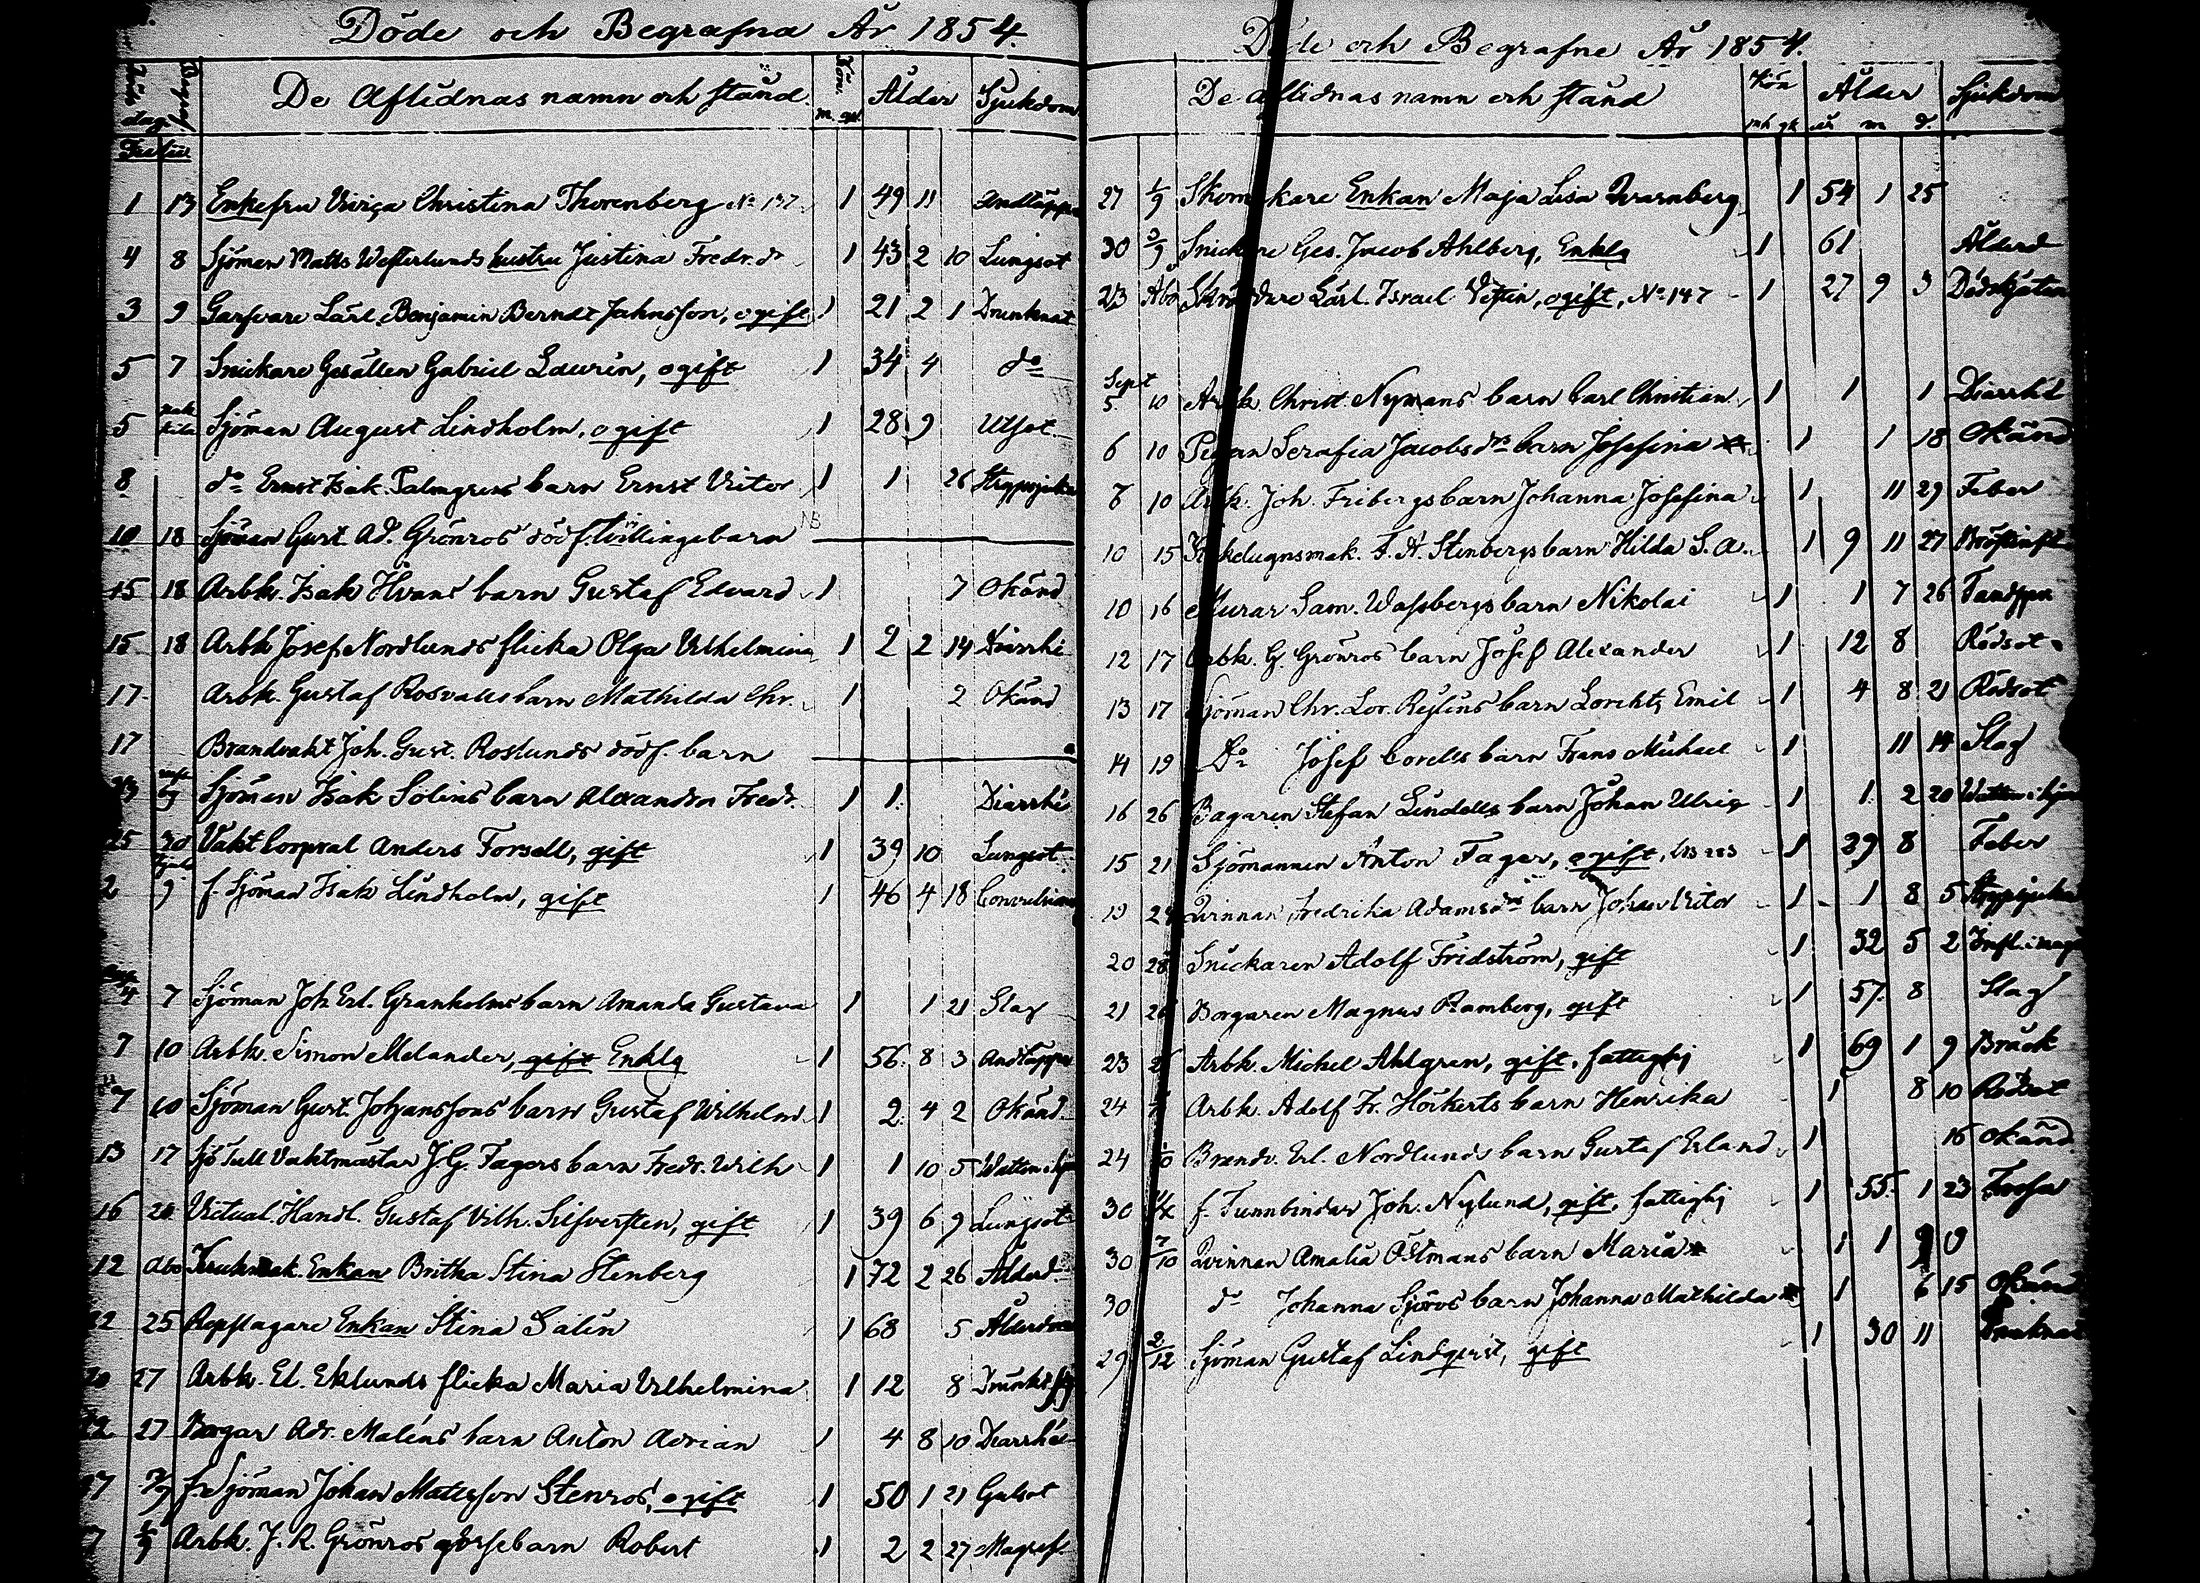 Döde och Begrafna År 1854.
De Aflidnas namn och stånd. Kön Ålder Sjukdom
dag m. qv.
1 13 Enkefru Viviça Christina Thorenberg No 137 1 49 11 Andtäppa
4 8 Sjöman Matts Westerlunds hustru Justina Fredr. dr 1 43 2 10 Lungsot
3 9 Garfvare Lärl. Benjamin Berndt Jahnsson, ogift 1 21 2 1 Drunknat
5 7 Snickare Gesällen Gabriel Laurin, ogift 1 34 4 do
5 Sjöman August Lindholm, ogift 1 28 9 Utsot
8 do Ernst Isak Palmgrens barn Ernst Victor 1 1 26 Strypsjuka
10 18 Sjöman Gust. Ad. Grönros dödf. tvillingebarn
15 18 Arbk. Isak Hvans barn Gustaf Edvard 1 7 Okänd
15 18 Arbk Josef Nordlunds flicka Olga Vilhelmina 1 2 2 14 Diarrhé
17 Arbk. Gustaf Rosvalls barn Mathilda Chr. 1 2 Okänd
17 Brandvakt Joh. Gust. Roslunds dödf. barn
23 Sjöman Isak Solins barn Alexandra Fredr. 1 1 Diarrhé
25 30 Vakt Corporal Anders Forsell, gift 1 39 10 Lungsot
2 9 f. Sjöman Isak Lindholm, gift 1 46 4 18 Convulsion
4 7 Sjöman Joh. Erl. Granholms barn Amanda Gustava 1 1 21 Slag
7 10 Arbk. Simon Melander, gift Enklg 1 56 8 3 Andtäppa
7 10 Sjöman Gust. Johanssons barn Gustaf Wilhelm 1 2 4 2 Okänd
13 17 Sjö Tull Vaktmästar J. G. Fagers barn Fredr. Wilh 1 1 10 5 Watten i hju
16 20 Victual. Handl. Gustaf Vilh. Silfversten, gift 1 39 6 9 Lungsot
12 Abo Krukmak. Enkan Britha Stina Stenberg 1 72 2 26 Ålderd
22 25 Repslagare Enkan Stina Salin 1 68 5 Ålderdom
20 27 Arbk. El. Eklunds flicka Maria Vilhelmina 1 12 8
22 27 Borgar Adr. Maléns barn Anton Adrian 1 4 8 10 Diarrhé
27 f. Sjöman Johan Matsson Stenros, ogift 1 50 1 21 Gulsot
7 Arbk. J. R. Grönros gosse barn Robert 1 2 2 27 Magref.
Döde och Begrafne År 1854.
De aflidnas namn och stånd Kön Ålder Sjukdom
mk qk år m d.
27 1/9 Skomakare Enkan Maja Lisa Qvarnberg 1 54 1 25
30 3/9 Snickare Ges. Jacob Ahlberg, Enklg 1 61 Ålderd
23 Abo Skräddare Lärl. Israel Vettin, ogift, No 147 1 27 9 3
Sept
5 10 Arbk. Christ. Nymans barn Carl Christian 1 1 1 Diarrhé
6 10 Pigan Serafia Jacobsdrs barn Josefina 1 1 18 Okänd
8 10 Arbk. Joh. Fribergs barn Johanna Josefina 1 11 29 Feber
10 15 Kakelugnsmak. F. A. Stenbergs barn Hilda S. A. 1 9 11 27
10 16 Murar Sam. Wassbergs barn Nikolai 1 1 7 26
12 17 Arbk. G. Grönros barn Josef Alexander 1 12 8 Rödsot
13 17 Sjöman Chr. Lor. Reslins barn Emil 1 4 8 21 Rödsot
14 19 Do Josef Corells barn Frans Michael 1 11 14 Slag
16 26 Bagaren Stefan Lindells barn Johan Ulrig 1 1 2 20 Watten i hju
15 21 Sjömannen Anton Fager, ogift, 1 29 8 Feber
19 24 Qvinnan Fredrika Adamsdrs barn Johan Victor 1 1 8 5 Strypsjuka
20 28 Snickaren Adolf Fridström, gift 1 32 5 2 Infl. i mag
21 26 Borgaren Magnus Ramberg, gift 1 57 8 Slag
23 Arbk. Michel Ahlgren, gift, fattighj 1 69 1 9 Bråck
24 Arbk. Adolf Fr. Höckerts barn Henrika 1 8 10 Rödsot
24 Brandv. Erl. Nordlunds barn Gustaf Erland 1 16 Okänd
30 f. Tunnbindar Joh. Nylund, gift, fattighj 1 55 1 23 Frossa
30 7/10 Qvinnan Amalia Östmans barn Maria 1 1 9 0
30 do Johanna Sjöros barn Johanna Mathilda 1 6 15 Okänd
29 2/12 Sjöman Gustaf Lindqvist, gift 1 30 11 Drunknat